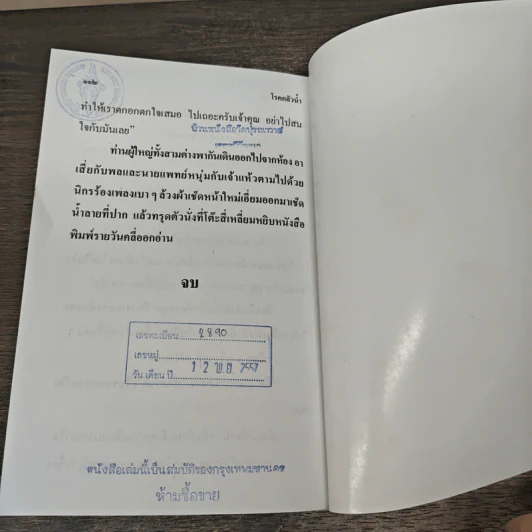 ๑๑๒
โรคกลัวน้ำ
ทำให้เราตกอกตกใจเสมอ ไปเถอะครับเจ้าคุณ อย่าไปสน
ใจกับมันเลย"
ท่านผู้ใหญ่ทั้งสามต่างพากันเดินออกไปจากห้อง อา
เสี่ยกับพลและนายแพทย์หนุ่มกับเจ้าแห้วตามไปด้วย
นิกรร้องเพลงเบา ๆ ล้วงผ้าเช็ดหน้าใหม่เอี่ยมออกมาเช็ด
น้ำลายที่ปาก แล้วทรุดตัวนั่งที่โต๊ะสี่เหลี่ยมหยิบหนังสือ
พิมพ์รายวันคลี่ออกอ่าน
จบ
เลขทะเบียน 2890
เลขหมู่
วัน เดือน ปี 12 พ.ย. 2557
หนังสือเล่มนี้เป็นสมบัติของกรุงเทพมหานคร
ห้ามซื้อขาย